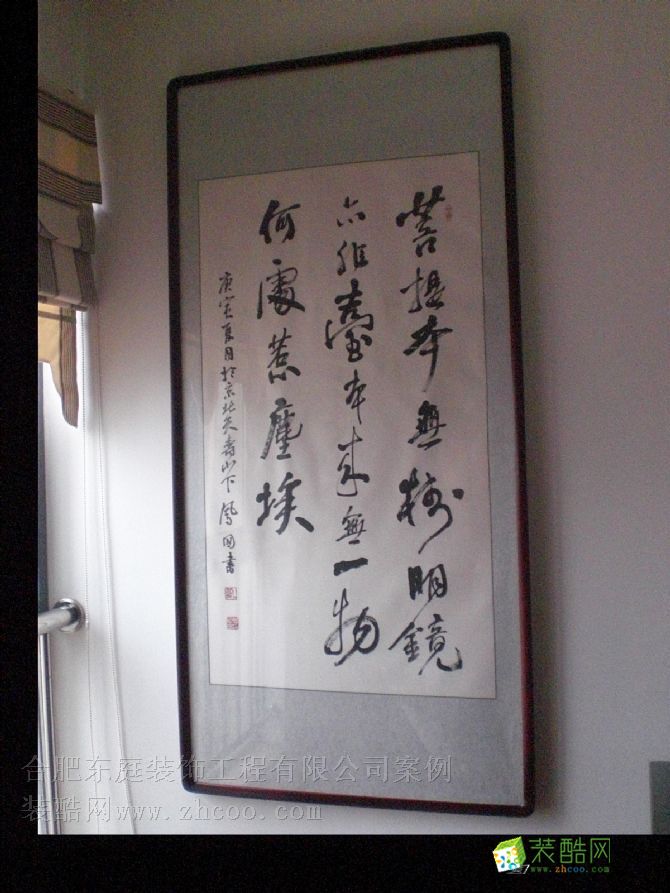 菩提本無樹明鏡
亦非臺本來無一物
何處惹塵埃
庚寅夏月於京北天壽山下 鳳国書
合肥东庭装饰工程有限公司案例
装酷网www.zhcoo.com
装酷网
www.zhcoo.com